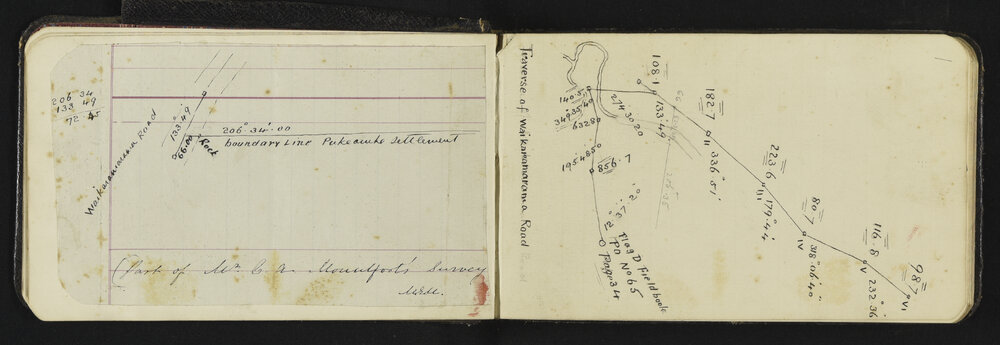 206 34
133 49
72 45
Waikanamarama Road
133° 49
66.00 Rock
206° 34' 00
boundary Line Pukeauko Settlement
(Part of Mr C. A. Mountfort's Survey
Traverse of Waikanamarama Road
108.1
140.5
274 30 20
133.49
349 35 40
632.80
195 48 50
856.7
2° 37' 20"
Flag D field book
PO No 65
Page 34
182.7
II
336° 51'
223.6
III
179° 44
80.7
IV
318° 06' 40"
116.8
V
232° 36'
98.7
VI
1